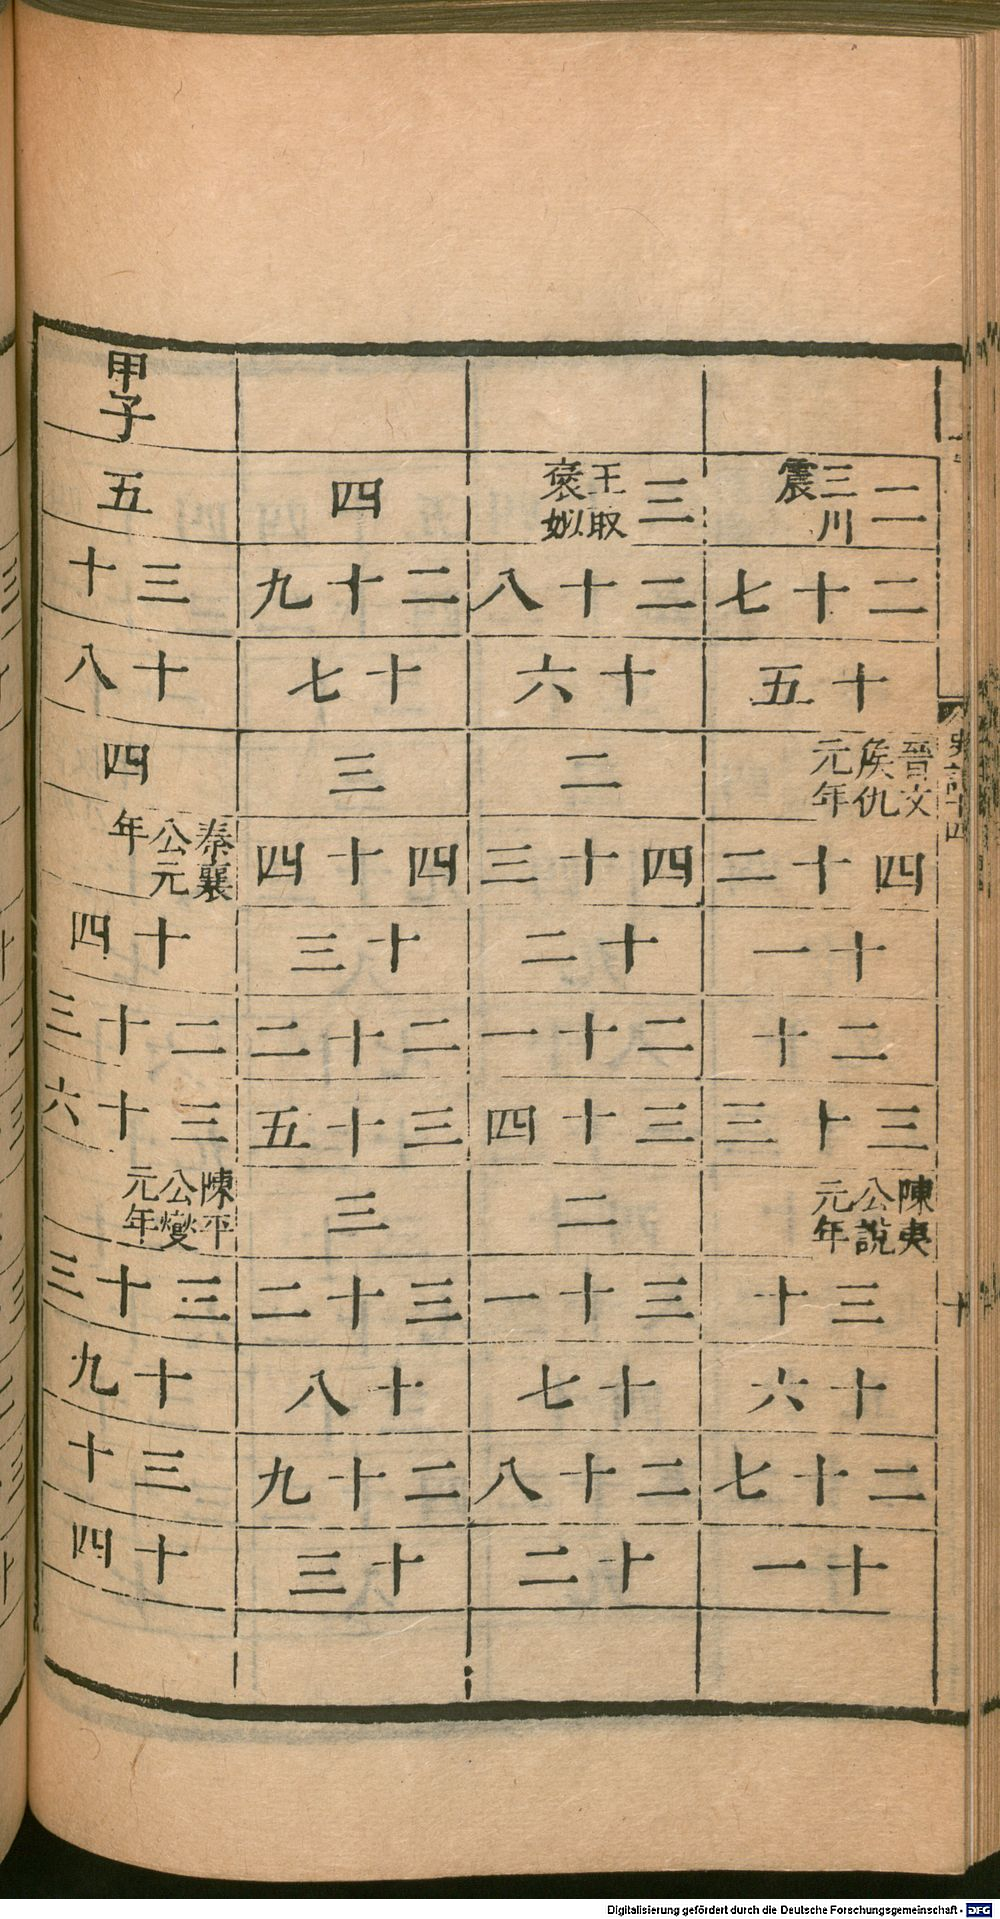 史記十四
十
二三川震
二十七
十五
晉文侯仇元年
四十二
十一
二十
三十三
陳夷公說元年
三十
十六
二十七
十一
三王取褒姒
二十八
十六
二
四十三
十二
二十一
三十四
二
三十一
十七
二十八
十二
四
二十九
十七
三
四十四
十三
二十二
三十五
三
三十二
十八
二十九
十三
甲子
五
三十
十八
四
秦襄公元年
十四
二十三
三十六
陳平公燮元年
三十三
十九
三十
十四
Digitalisierung gefördert durch die Deutsche Forschungsgemeinschaft - DFG